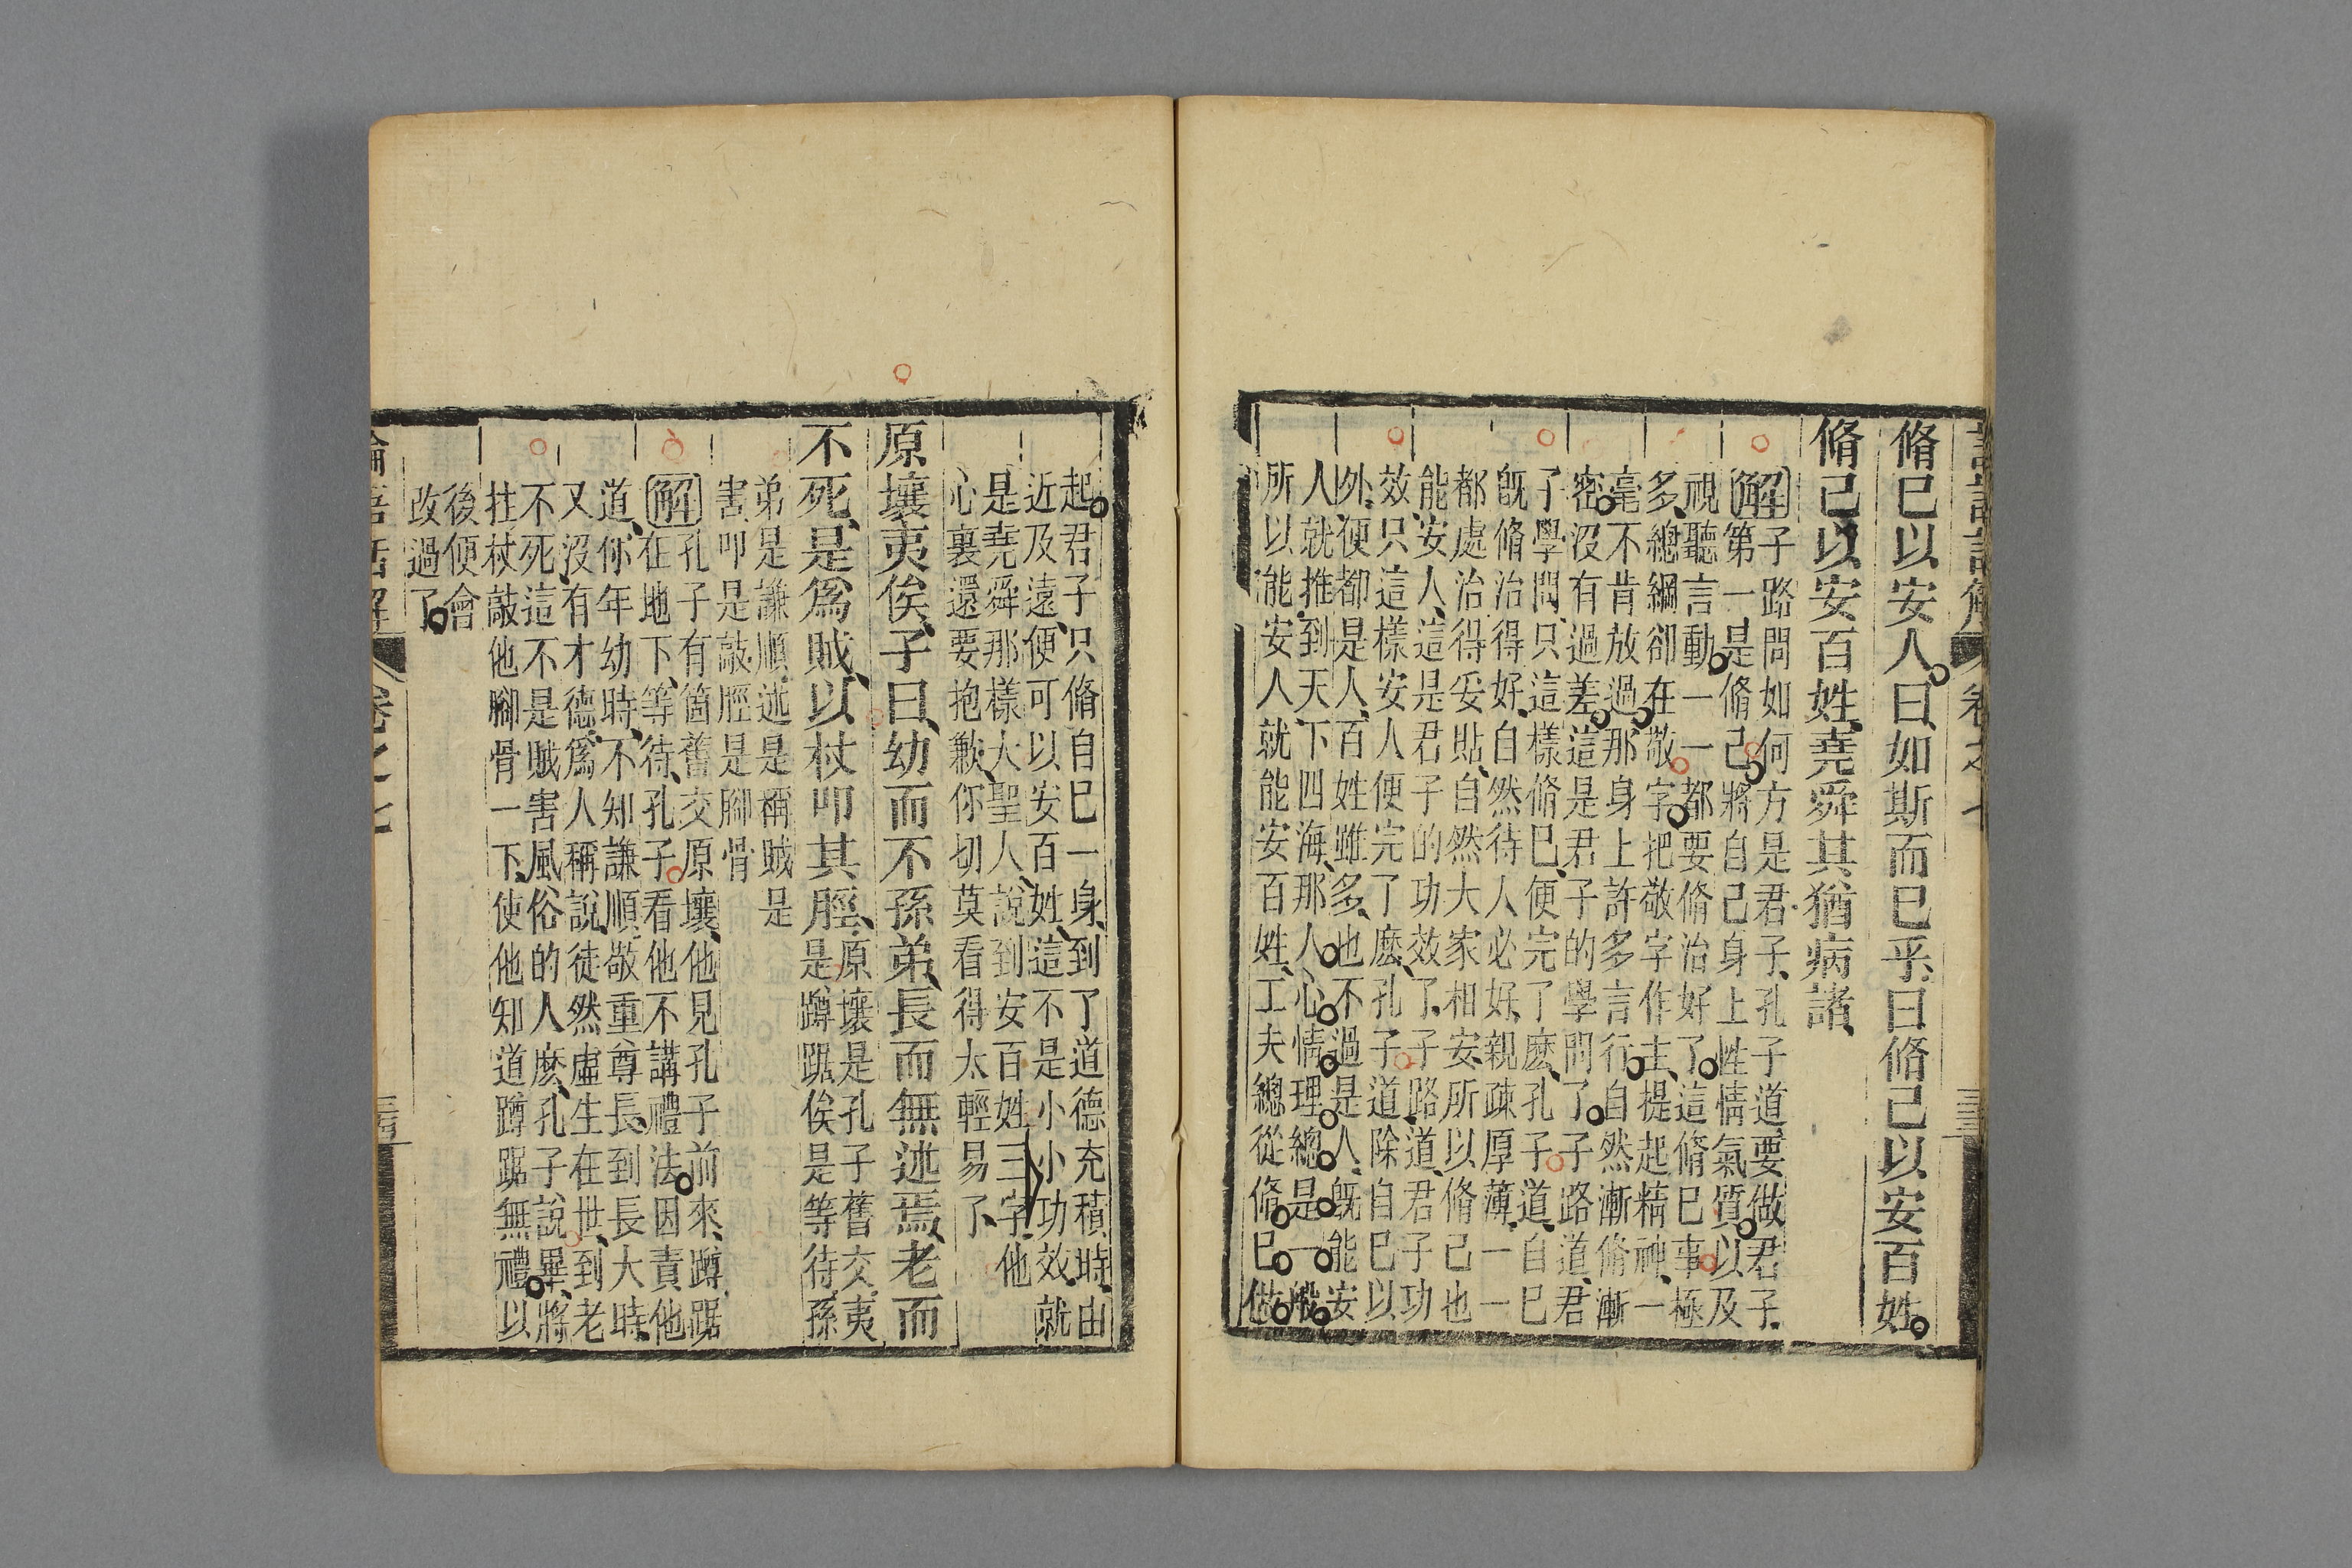 脩已以安人。曰、如斯而已乎、曰脩己以安百姓。
脩己以安百姓、堯舜其猶病諸、
解子路問如何方是君子、孔子道、要做君子、
第一是脩己。將自己身上性情氣質。以及
視聽言動。一一都要脩治好了。這脩已事極
多、總綱卻在敬字。把敬字作主、提起精神、一
毫不肯放過。那身上許多言行。自然漸脩漸
密。沒有過差。這是君子的學問了。子路道、君
子學問、只這樣脩已、便完了麽、孔子道、自已
既脩治得好、自然待人必好、親疎厚薄、一一
都處治得妥貼、自然大家相安、所以脩己也
能安人、這是君子的功效了、子路道、君子功
效、只這樣安人便完了麽、孔子道、除自已以
外、便都是人、百姓雖多、也不過是人、既能安
人、就推到天下四海、那人心情理總是一般
所以能安人就能安百姓、工夫總從脩已做
起。君子只脩自已一身、到了道德充積時、由
近及遠、便可以安百姓、這不是小小功效、就
是堯舜那樣大聖人、說到安百姓三字、他
心裏還要抱歉、你切莫看得太輕易了、
原壤夷俟、子曰、幼而不孫弟、長而無述焉、老而
不死、是爲賊、以杖叩其脛、原壤是孔子舊交、夷
是蹲踞俟是等待孫
弟是謙順、述是稱賊是
害叩是敲脛是腳骨
解孔子有箇舊交原壤、他見孔子前來、蹲踞
在地下、等待、孔子看他不講禮法。因責他
道、你年幼時、不知謙順、敬重尊長、到長大時、
又沒有才德、爲人稱說、徒然虛生在世、到老
不死、這不是賊害風俗的人麽、孔子說畢、將
拄杖敲他腳骨一下、使他知道蹲踞無禮。以
後便會
改過了。
卷之七